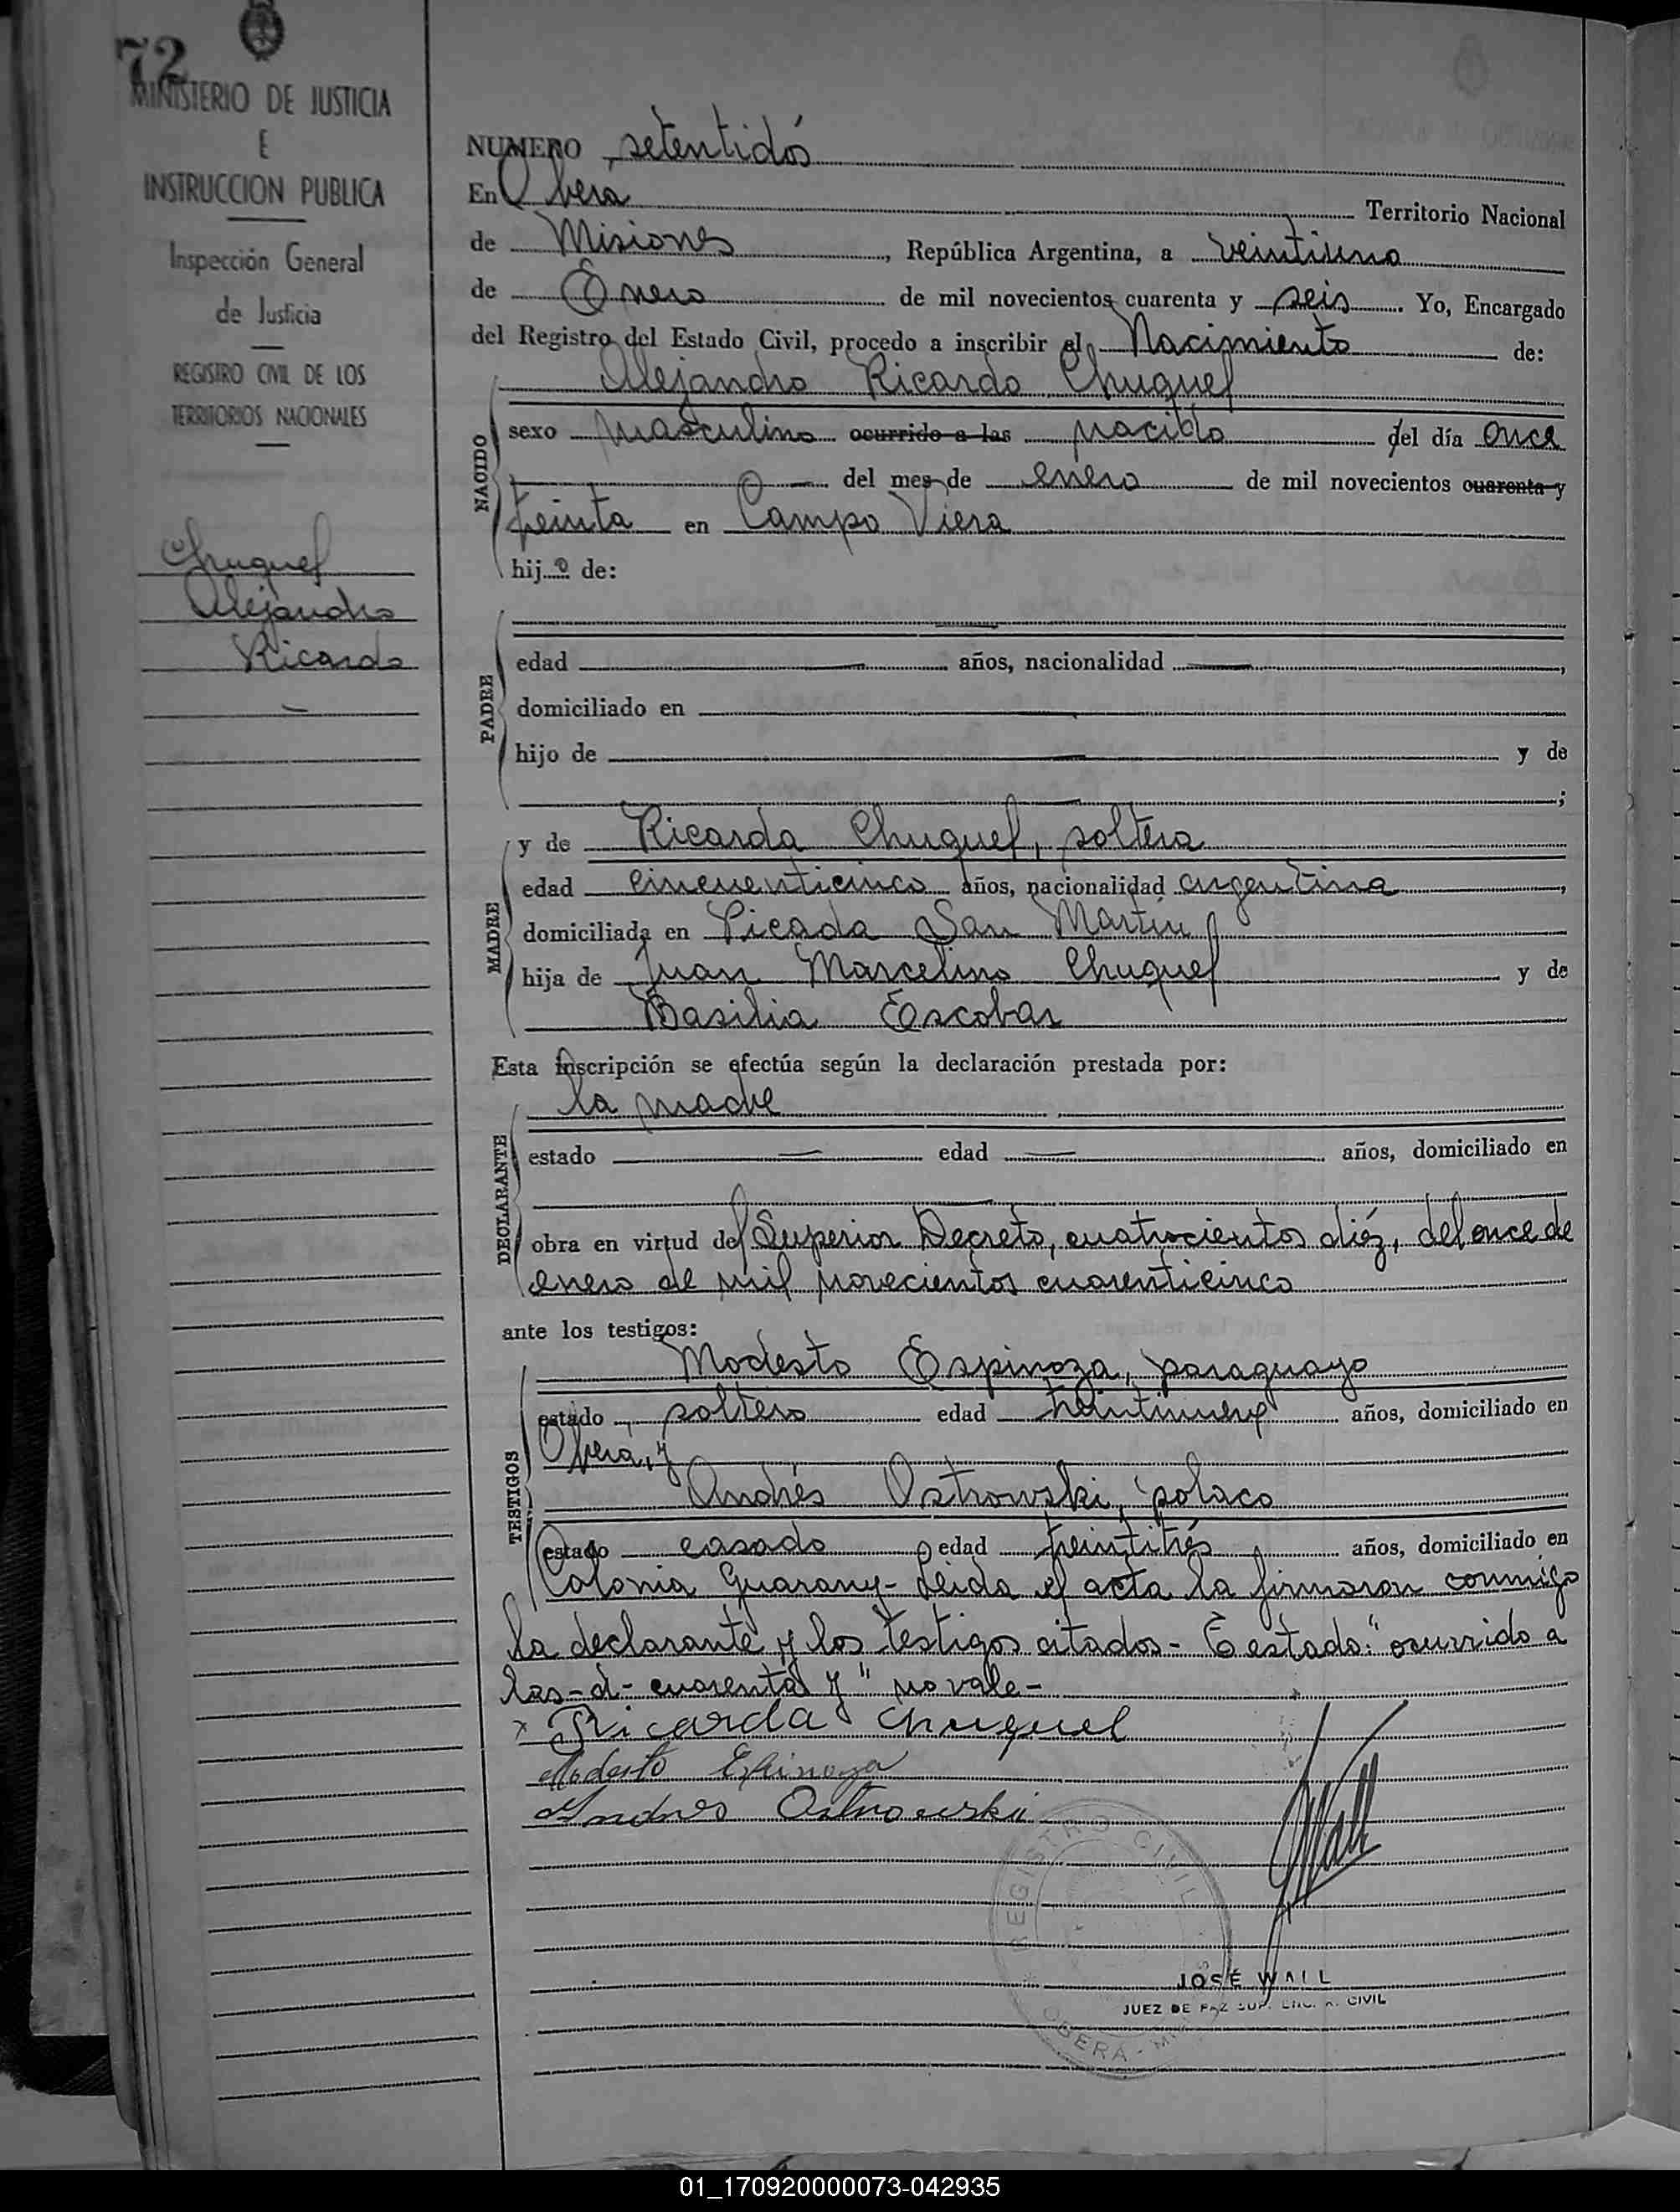 72
MINISTERIO DE JUSTICIA
E
INSTRUCCION PUBLICA
Inspección General
de Justicia
REGISTRO CIVIL DE LOS
TERRITORIOS NACIONALES
Chuquel
Alejandro
Ricardo
NUMERO setentidós
En Oberá Territorio Nacional
de Misiones, República Argentina, a veintiuno
de Enero de mil novecientos cuarenta y seis. Yo, Encargado
del Registro del Estado Civil, procedo a inscribir el Nacimiento de:
Alejandro Ricardo Chuquel
NACIDO
sexo masculino ocurrido a las nacido del día once
del mes de enero de mil novecientos cuarenta y
treinta en Campo Viera
hijo de:
PADRE
edad años, nacionalidad ,
domiciliado en
hijo de y de
;
MADRE
y de Ricarda Chuquel, soltera
edad cincuenticinco años, nacionalidad argentina,
domiciliada en Picada San Martín
hija de Juan Marcelino Chuquel y de
Basilia Escobar
Esta inscripción se efectúa según la declaración prestada por:
DECLARANTE
la madre
estado edad años, domiciliado en
obra en virtud del Superior Decreto, cuatrocientos diéz, del once de
enero de mil novecientos cuarenticinco
ante los testigos:
TESTIGOS
Modesto Espinoza, paraguayo
estado soltero edad treintinueve años, domiciliado en
Oberá, y
Andrés Ostrowski, polaco
estado casado edad treintitrés años, domiciliado en
Colonia Guarany- Leida el acta la firmaron conmigo
la declarante y los testigos citados- Testado: "ocurrido a
las-d- cuarenta y" no vale-
x Ricarda chuquel
Modesto Espinoza
Andres Ostrowski
Wall
REGISTRO CIVIL
OBERÁ -
JOSÉ WALL
JUEZ DE PAZ SUP. ENC. R. CIVIL
01_170920000073-042935